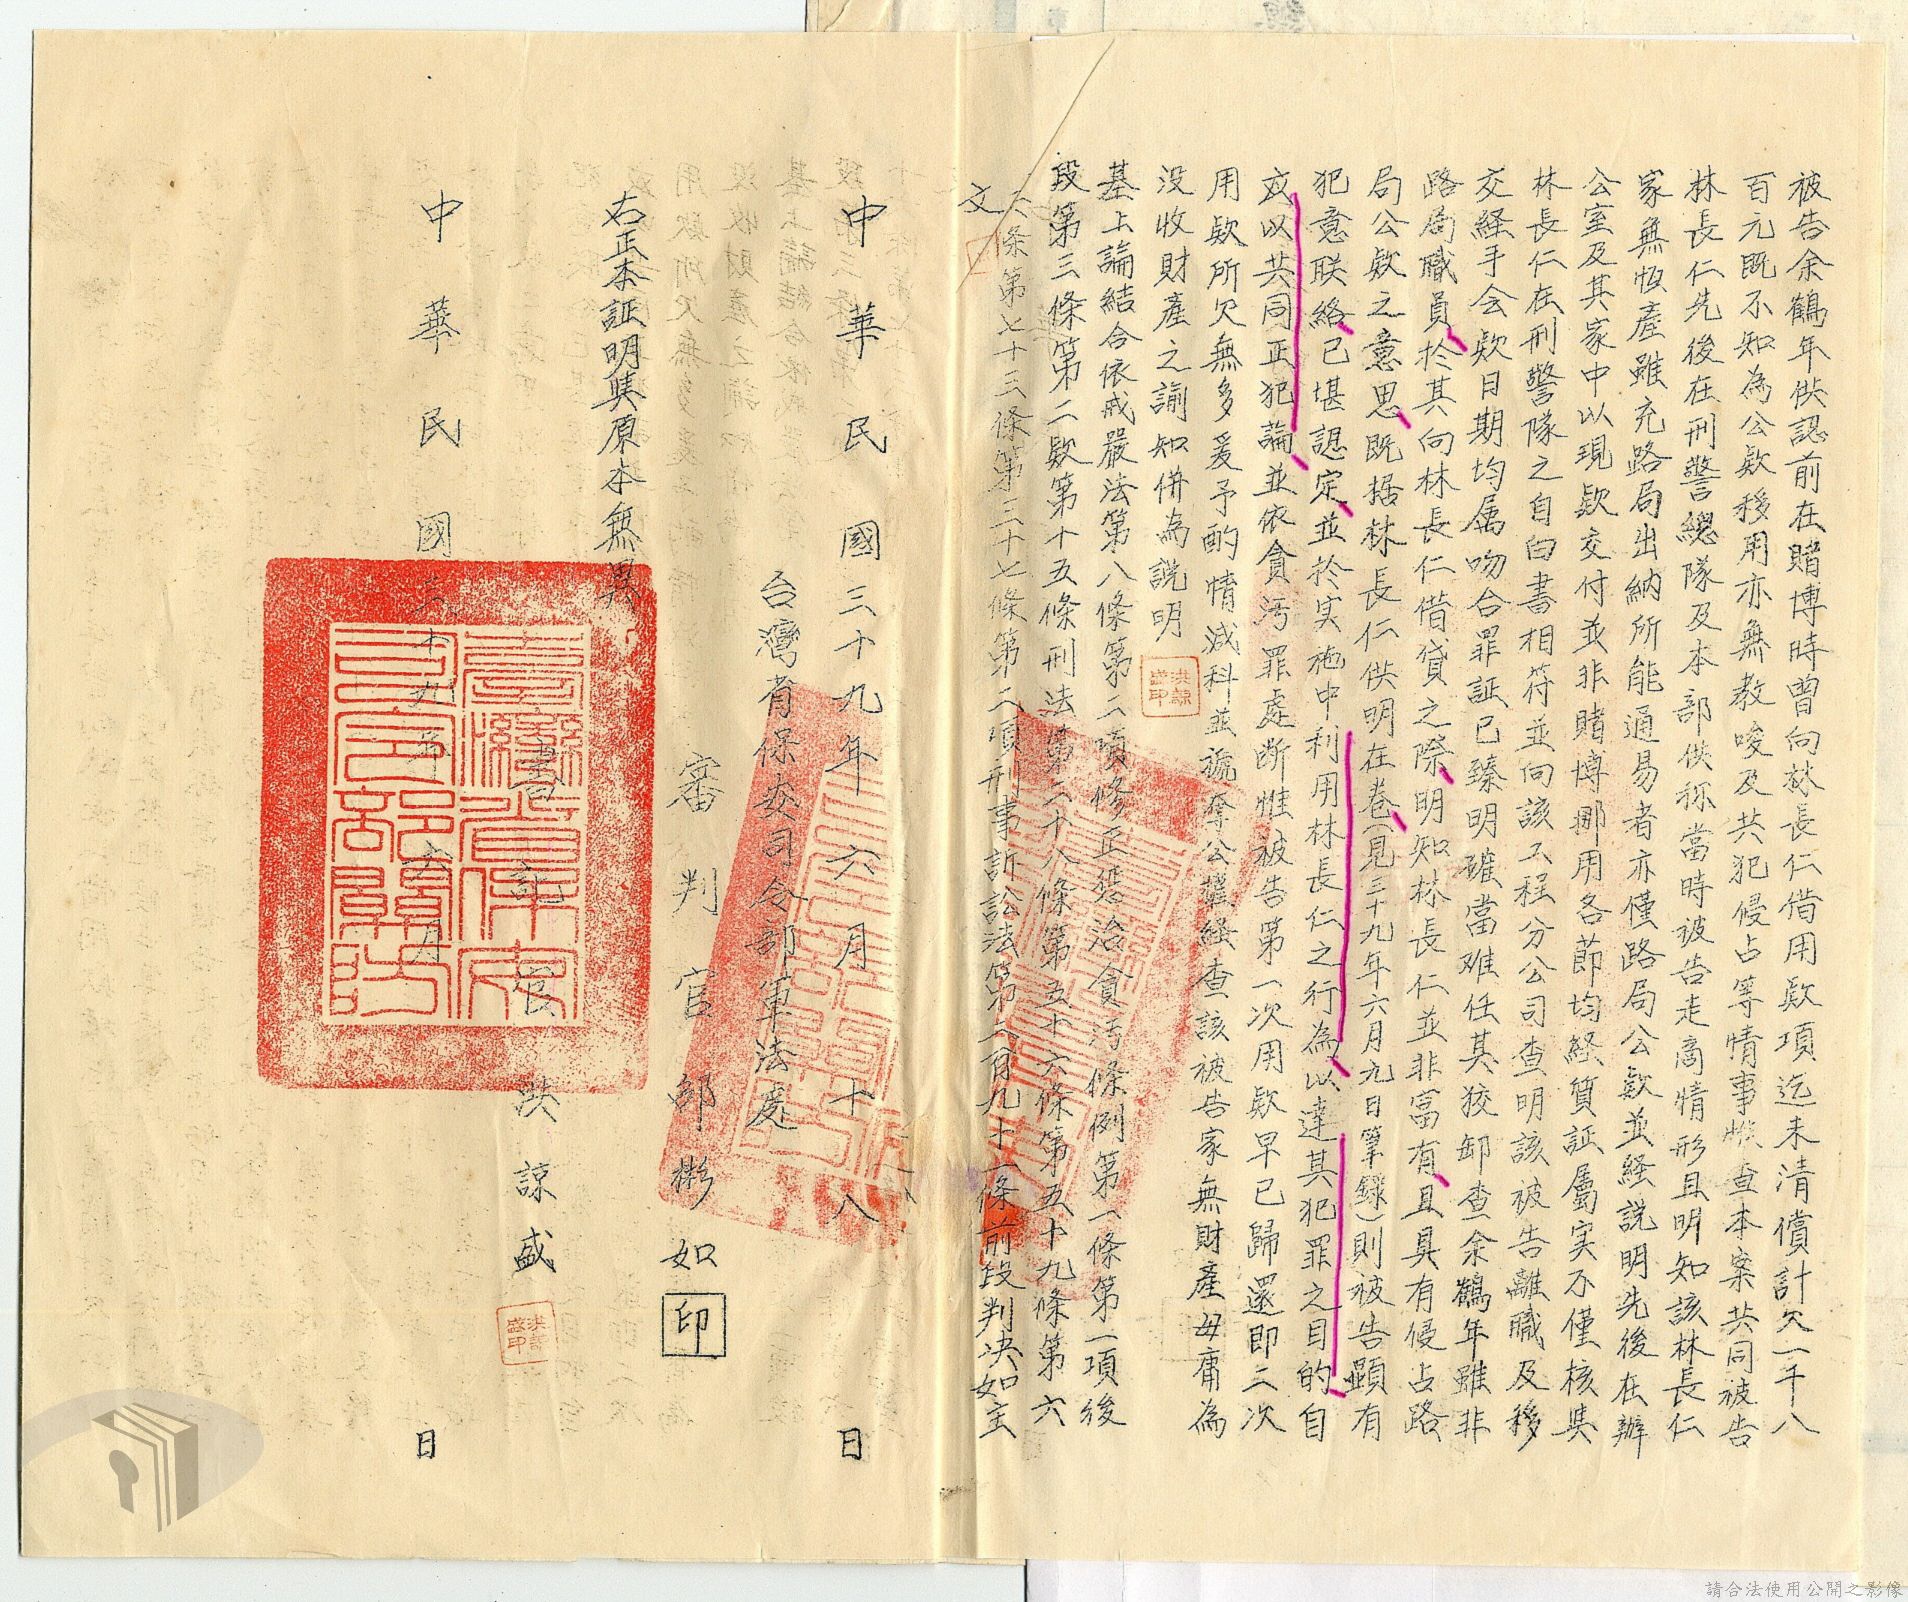 被告余鶴年供認前在賭博時曾向林長仁借用欵項迄未清償計欠一千八
百元既不知為公欵移用亦無教唆及共犯侵占等情事惟查本案共同被告
林長仁先後在刑警總隊及本部供称當時被告走商情形且明知該林長仁
家無恒產雖充路局出納所能通易者亦僅路局公欵並経説明先後在辦
公室及其家中以現欵交付並非賭博挪用各節均経質証屬实不僅核與
林長仁在刑警隊之自白書相符並向該工程分公司查明該被告離職及移
交経手会欵日期均屬吻合罪証已臻明確當难任其狡卸查余鶴年雖非
路局職員於其向林長仁借貸之際明知林長仁並非富有且具有侵占路
局公欵之意思既据林長仁供明在卷（見三十九年六月九日筆錄）則被告顕有
犯意联絡已堪認定並於实施中利用林長仁之行為以達其犯罪之目的自
应以共同正犯論並依貪污罪處断惟被告第一次用欵早已歸還即二次
用欵所欠無多爰予酌情減科並褫奪公權経查該被告家無財產毋庸為
没收財產之諭知併為説明
基上論結合依戒嚴法第八條第二項修正懲治貪污條例第一條第一項後
段第三條第二欵第十五條刑法第二十八條第五十六條第五十九條第六
六條第七十三條第三十七條第二項刑事訴訟法第二百九十一條前段判决如主
文
中華民國三十九年六月十八日
台灣省保安司令部軍法處
審判官部彬如印
右正本証明與原本無異
書記官洪諒盛
洪諒盛印
中華民國三十九年六月日
請合法使用公開之影像